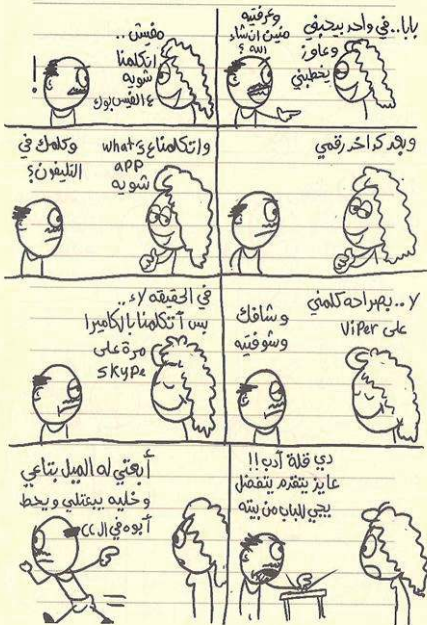 بابا.. في واحد بيحبني
و عاوز
يخطبني
وعرفتيه
منين ان شاء
الله ؟
مفيش ..
اتكلمنا
شويه
ع الفيس بوك
!
وبعد كدا خد رقمي
واتكلمنا ع what's
app
شويه
وكلمك في
التليفون؟
لا .. بصراحه كلمني
على ViPer
و شافك
وشوفتيه
في الحقيقه لاء ..
بس اتكلمنا بالكاميرا
مرة على
skype
دي قلة أدب !!
عايز يتقدم يتفضل
يجي للباب من بيته
أبعتي له الميل بتاعي
و خليه يبعتلي ويحط
أبوه في ال cc